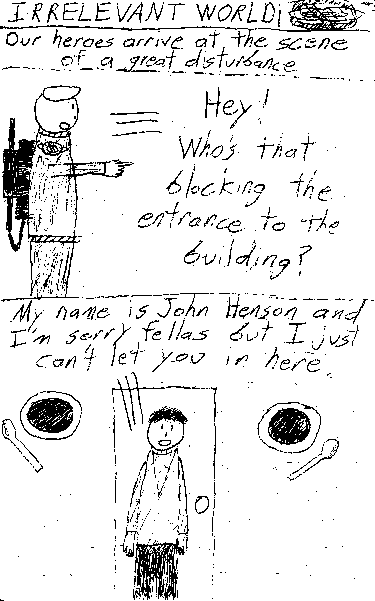 IRRELEVANT WORLD!
Our heroes arrive at the scene
of a great disturbance
Hey!
Who's that
blocking the
entrance to the
building?
My name is John Henson and
I'm sorry fellas but I just
can't let you in here.